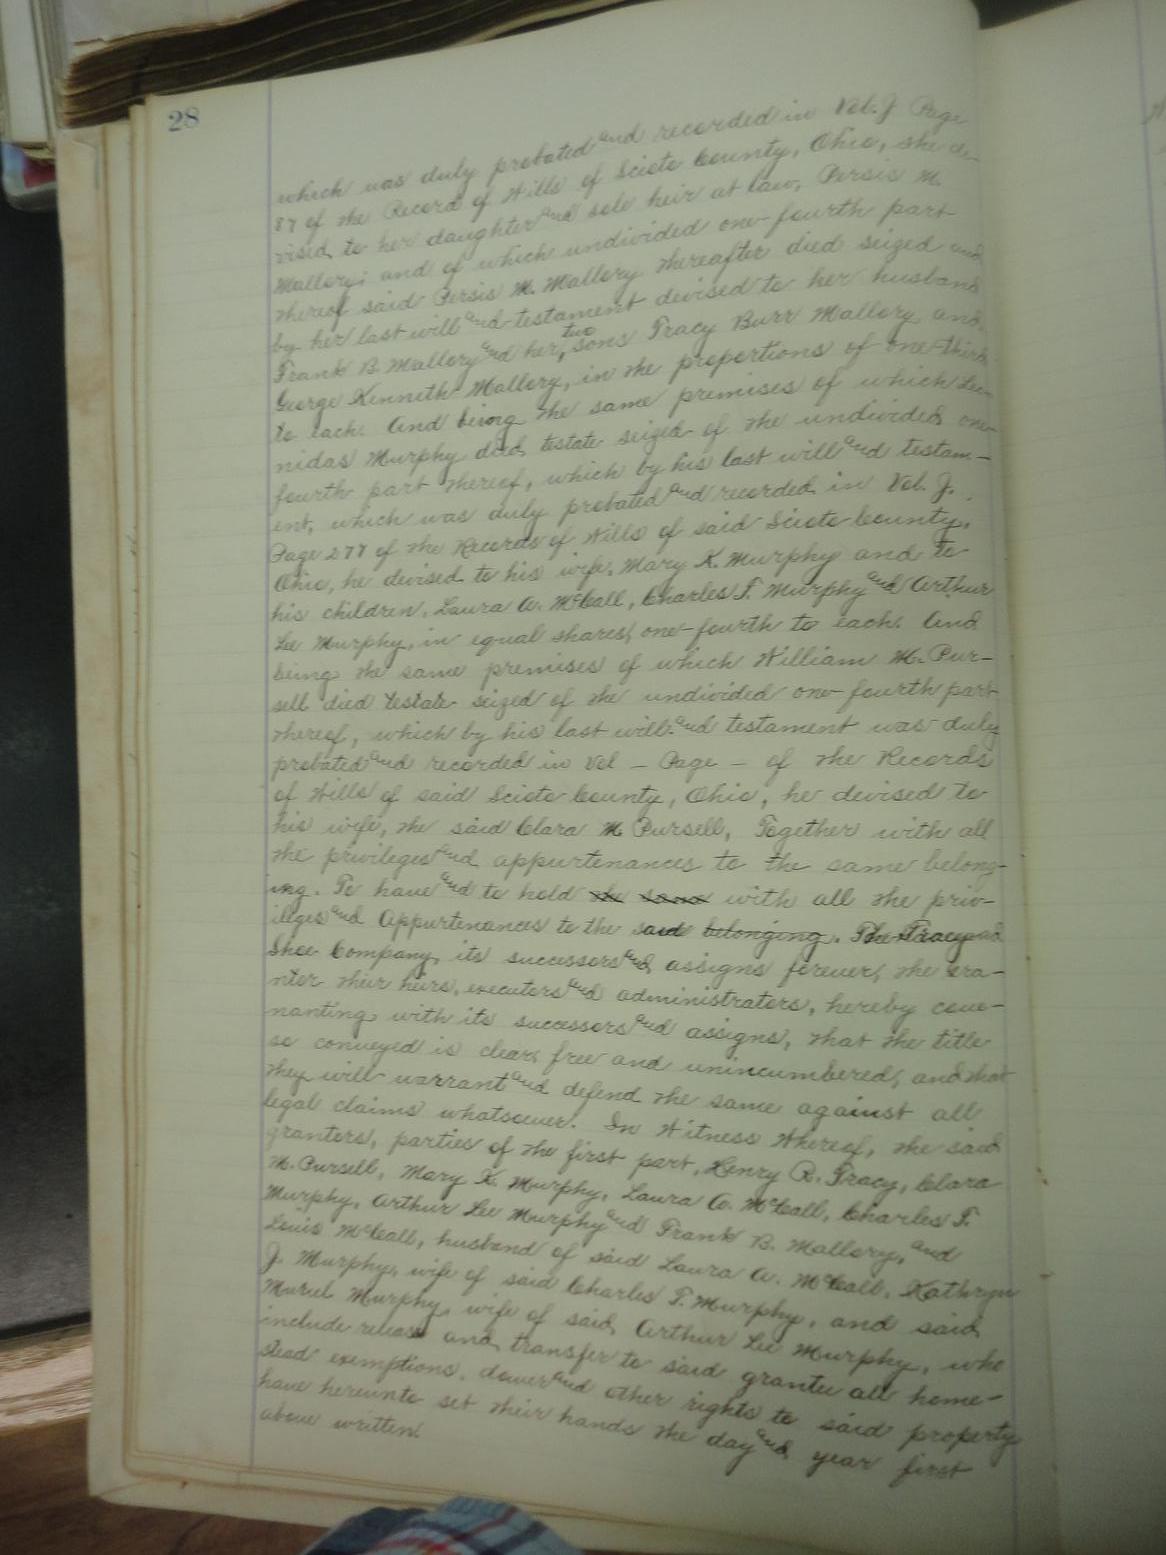 28
which was duly probated and recorded in Vol. J Page
87 of the Record of Wills of Scioto County, Ohio, she de-
vised to her daughter and sole heir at law, Persis M.
Mallory; and of which undivided one-fourth part
thereof said Persis M. Mallory thereafter died seized and
by her last will and testament devised to her husband
Frank B. Mallory and her two sons Tracy Burr Mallory and
George Kenneth Mallory, in the proportions of one-third
to each. And being the same premises of which Leo-
nidas Murphy died testate seized of the undivided one-
fourth part thereof, which by his last will and testam-
ent, which was duly probated and recorded in Vol. J.
Page 277 of the Records of Wills of said Scioto County,
Ohio, he devised to his wife, Mary K. Murphy and to
his children, Laura A. McCall, Charles F. Murphy and Arthur
Lee Murphy, in equal shares, one-fourth to each. And
being the same premises of which William M. Pur-
sell died testate seized of the undivided one-fourth part
thereof, which by his last will and testament was duly
probated and recorded in Vol — Page — of the Records
of Wills of said Scioto County, Ohio, he devised to
his wife, the said Clara M Pursell, Together with all
the privileges and appurtenances to the same belong-
ing. To have and to hold the same with all the priv-
ileges and Appurtenances to the said belonging. The Tracy
Shoe Company, its successors and assigns forever, the gra-
ntor their heirs, executors and administrators, hereby cove-
nanting with its successors and assigns, that the title
so conveyed is clear, free and unincumbered, and that
they will warrant and defend the same against all
legal claims whatsoever. In Witness Whereof, the said
grantors, parties of the first part, Henry R. Tracy, Clara
M. Pursell, Mary K. Murphy, Laura A. McCall, Charles F.
Murphy, Arthur Lee Murphy and Frank B. Mallory, and
Louis McCall, husband of said Laura A. McCall, Kathryn
J. Murphy, wife of said Charles F. Murphy, and said
Muriel Murphy, wife of said Arthur Lee Murphy, who
include release and transfer to said grantee all home-
stead exemptions, dower and other rights to said property
have hereunto set their hands the day and year first
above written.